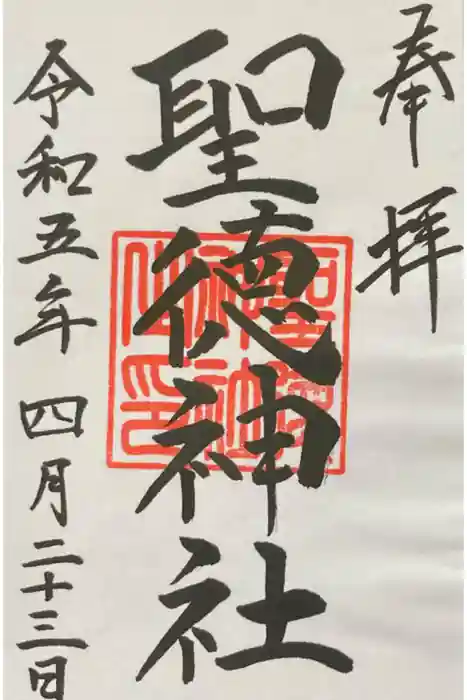 奉拝
聖徳神社
令和五年四月二十三日